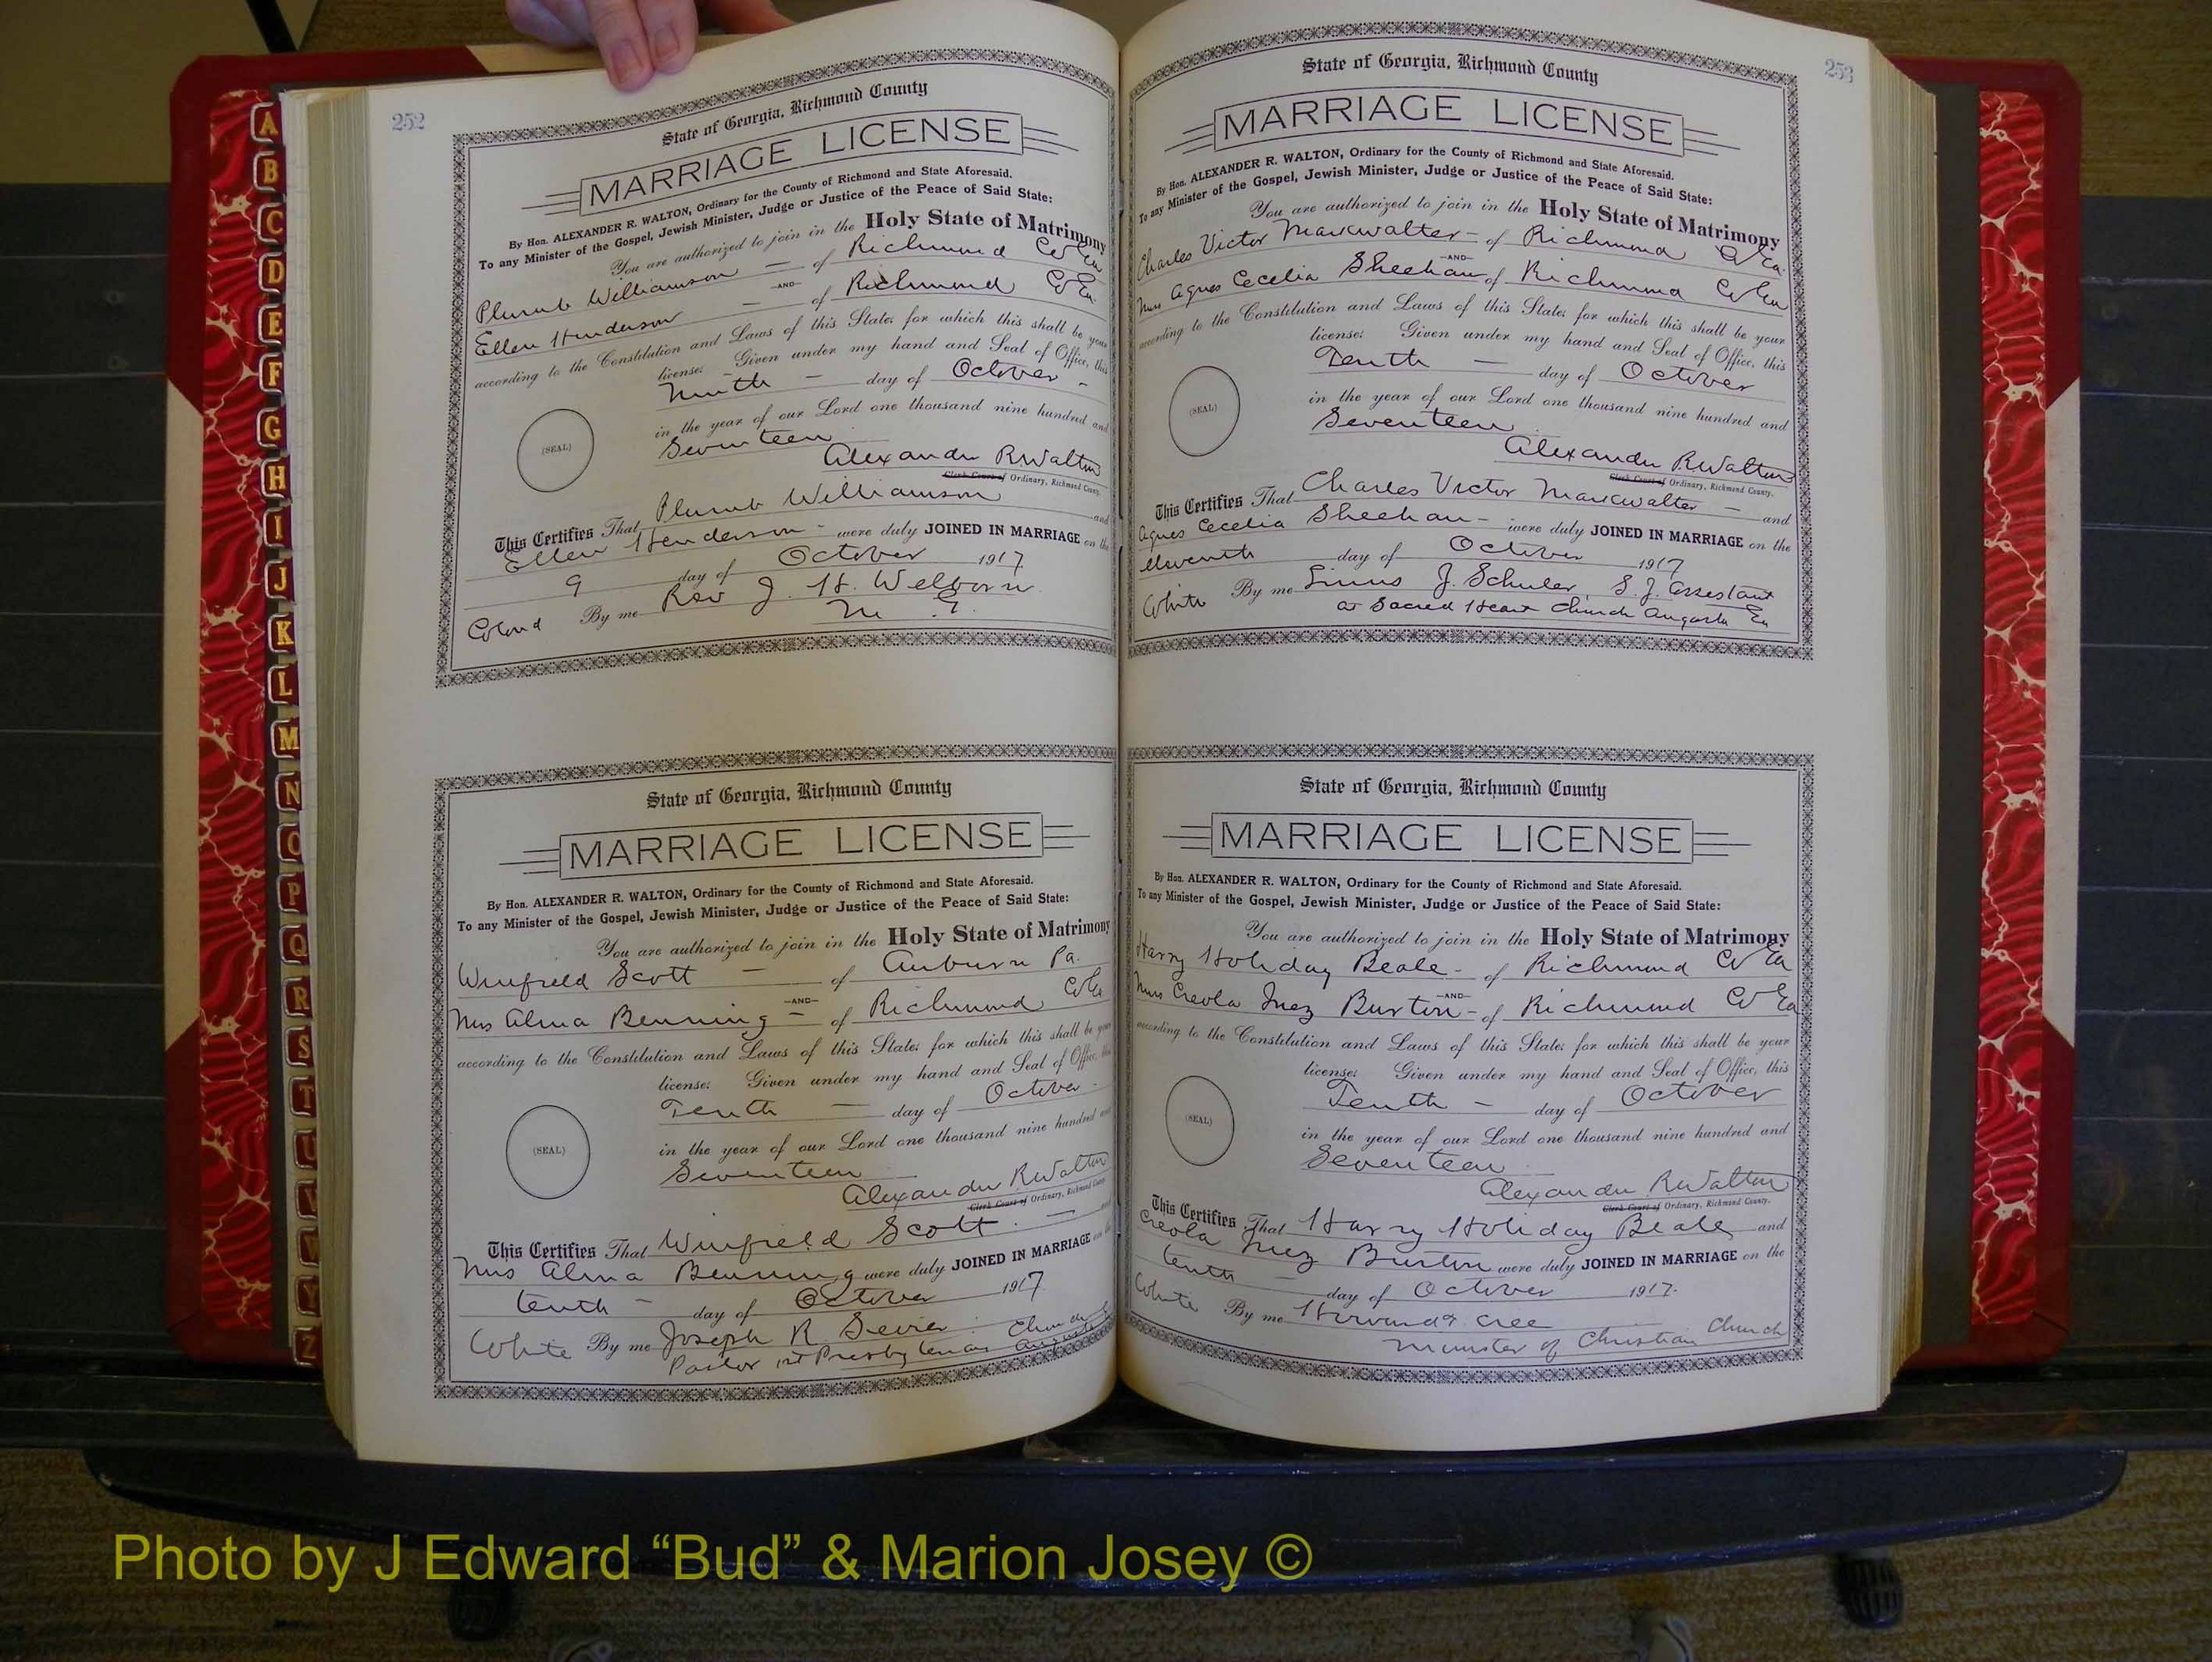 252
State of Georgia, Richmond County
MARRIAGE LICENSE
By Hon. ALEXANDER R. WALTON, Ordinary for the County of Richmond and State Aforesaid.
To any Minister of the Gospel, Jewish Minister, Judge or Justice of the Peace of Said State:
You are authorized to join in the Holy State of Matrimony
Plumb Williamson — of Richmond Co Ga
—AND—
Ellen Henderson — of Richmond Co Ga
according to the Constitution and Laws of this State; for which this shall be your
license. Given under my hand and Seal of Office, this
Ninth — day of October -
in the year of our Lord one thousand nine hundred and
(SEAL)
Seventeen
Alexander R Walton
Clerk Court of Ordinary, Richmond County.
This Certifies That Plumb Williamson and
Ellen Henderson - were duly JOINED IN MARRIAGE on the
9 day of October 1917
Colord By me Rev J. H. Welborn
M. G.
State of Georgia, Richmond County
MARRIAGE LICENSE
By Hon. ALEXANDER R. WALTON, Ordinary for the County of Richmond and State Aforesaid.
To any Minister of the Gospel, Jewish Minister, Judge or Justice of the Peace of Said State:
You are authorized to join in the Holy State of Matrimony
Winfield Scott — of Auburn Pa.
—AND—
Mrs Alma Benning - of Richmond Co Ga
according to the Constitution and Laws of this State; for which this shall be your
license. Given under my hand and Seal of Office, this
Tenth — day of October -
in the year of our Lord one thousand nine hundred and
(SEAL)
Seventeen
Alexander R Walton
Clerk Court of Ordinary, Richmond County.
This Certifies That Winfield Scott. — and
Mrs Alma Benning were duly JOINED IN MARRIAGE on the
tenth - day of October 1917
White By me Joseph R. Sevier
Pastor 1st Presbyterian Church Augusta
253
State of Georgia, Richmond County
MARRIAGE LICENSE
By Hon. ALEXANDER R. WALTON, Ordinary for the County of Richmond and State Aforesaid.
To any Minister of the Gospel, Jewish Minister, Judge or Justice of the Peace of Said State:
You are authorized to join in the Holy State of Matrimony
Charles Victor Markwalter - of Richmond Co Ga.
—AND—
Miss Agnes Cecelia Sheehan of Richmond Co Ga
according to the Constitution and Laws of this State; for which this shall be your
license. Given under my hand and Seal of Office, this
Tenth — day of October
in the year of our Lord one thousand nine hundred and
(SEAL)
Seventeen
Alexander R Walton
Clerk Court of Ordinary, Richmond County.
This Certifies That Charles Victor Markwalter — and
Agnes Cecelia Sheehan - were duly JOINED IN MARRIAGE on the
eleventh day of October 1917
White By me J. Schuler, S. J. assistant
at Sacred Heart Church Augusta Ga
State of Georgia, Richmond County
MARRIAGE LICENSE
By Hon. ALEXANDER R. WALTON, Ordinary for the County of Richmond and State Aforesaid.
To any Minister of the Gospel, Jewish Minister, Judge or Justice of the Peace of Said State:
You are authorized to join in the Holy State of Matrimony
Harry Holiday Beale - of Richmond Co Ga
—AND—
Miss Creola Inez Burton - of Richmond Co Ga
according to the Constitution and Laws of this State; for which this shall be your
license. Given under my hand and Seal of Office, this
Tenth - day of October
in the year of our Lord one thousand nine hundred and
(SEAL)
Seventeen
Alexander R Walton
Clerk Court of Ordinary, Richmond County.
This Certifies That Harry Holiday Beale and
Creola Inez Burton were duly JOINED IN MARRIAGE on the
tenth — day of October 1917.
White By me Cree
Minister of Christian Church
A
B
C
D
E
F
G
H
I
J
K
L
M
N
O
P
Q
R
S
T
U
V
W
Y
Z
Photo by J Edward “Bud” & Marion Josey ©